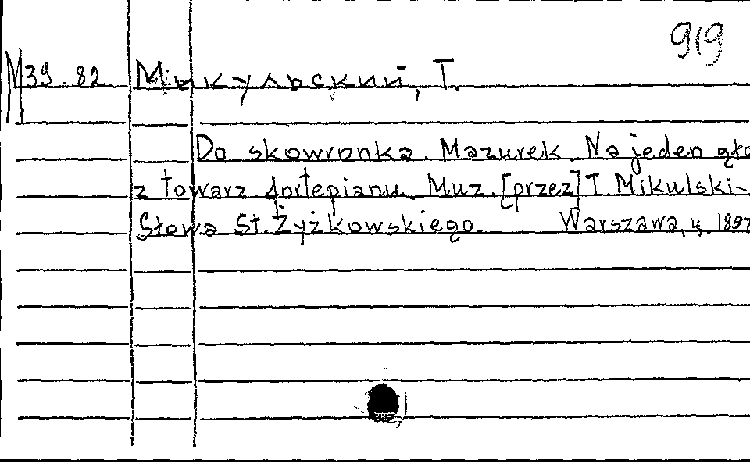 919
M39.82 Микульский, Т.
Do skowronka. Mazurek. Na jeden gło
z towarz fortepianu. Muz. [przez] T. Mikulski-
Słowa St. Żyżkowskiego. Warszawa, 1897